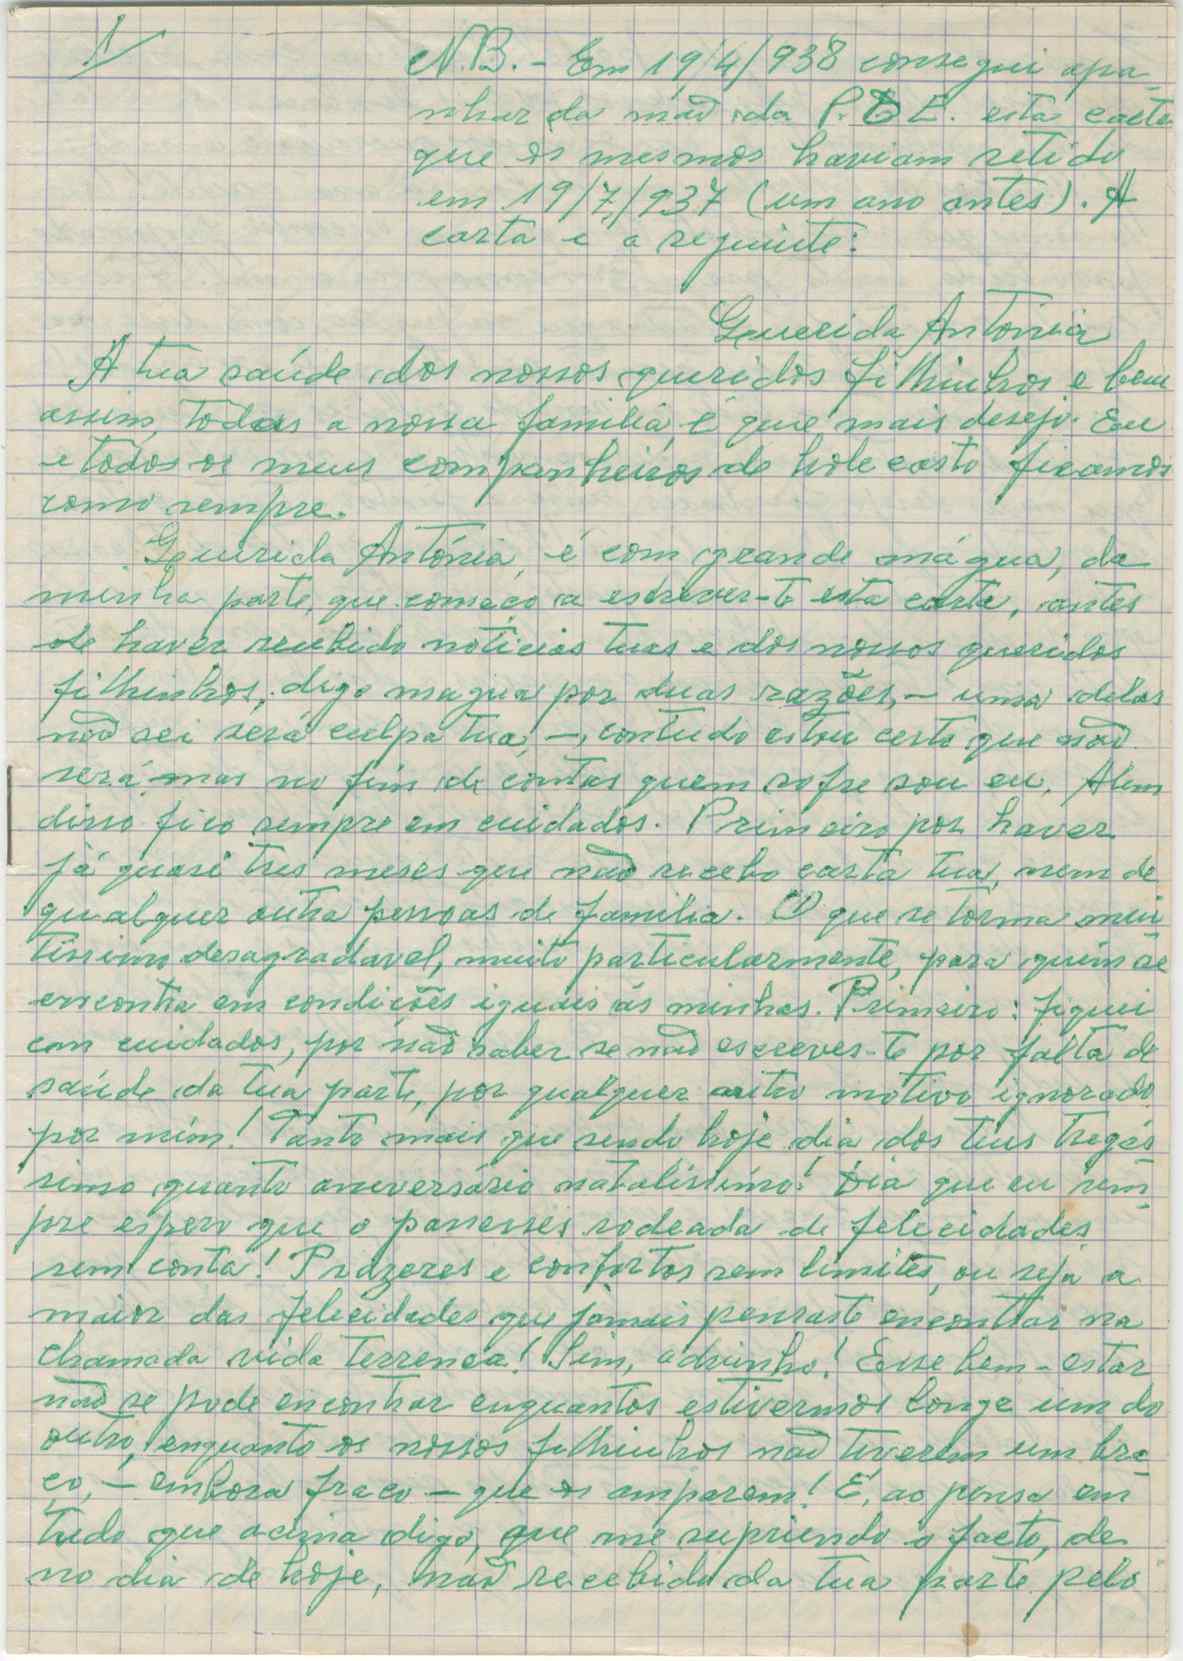 1
N.B. - Em 19/4/938 consegui apa-
nhar da mão da P.D E. esta carta
que os mesmos haviam retido
em 19/7/937 (um ano antes). A
carta e a seguinte:
Querida Antónia
A tua saúde dos nossos queridos filhinhos e bem
assim, todas a nossa familia, é que mais desejo. Eu
e todos os meus companheiros de holocasto ficamos
como sempre.
Querida Antónia, é com grande mágua, da
minha parte, que começo a escrever-te esta carta, antes
de haver recebido noticias tuas e dos nossos queridos
filhinhos, digo magua por duas razões, - uma delas
não sei será culpa tua, -, contudo estou certo que não
será, mas no fim de contas quem sofre sou eu. Alem
disso fico sempre em cuidados. Primeiro por haver
já quasi tres meses que não recebo carta tua, nem de
qualquer outra pessoas de familia. O que se torma mui-
tissimo desagradavel, muito particularmente, para quem se
encontra em condições iguais ás minhas. Primeiro: fiquei
com cuidados, por não saber se não escreves-te por falta de
saúde da tua parte, por qualquer outro motivo ignorado
por mim! Tanto mais que sendo hoje dia dos teus tregés-
simo quanto aneversário natalissimo! Dia que eu sem-
pre espero que o passesses rodeada de felecidades
sem conta! Prazeres e confortos sem limites, ou seja a
maior das felecidades que jámais pensaste encontrar na
chamada vida terrenea! Sim, adsinho! Esse bem-estar
não se pode encontrar enquantos estivermos longe um do
outro, enquanto os nossos filhinhos não tiverem um bra-
ço, - embora fraco - que os amparem! É, ao pensa em
tudo que acima digo, que me supriendo o facto, de
no dia de hoje, não recebido da tua parte pelo